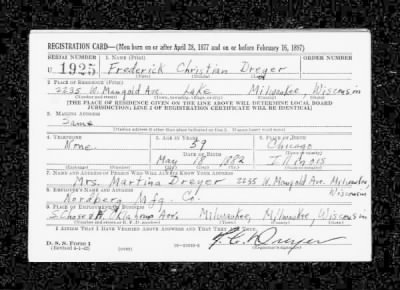 REGISTRATION CARD—(Men born on or after April 28, 1877 and on or before February 16, 1897)
SERIAL NUMBER 1. NAME (Print) ORDER NUMBER
U 1925 Frederick Christian Dreyer
(First) (Middle) (Last)
2. PLACE OF RESIDENCE (Print)
2235 W. Mangold Ave. Lake Milwaukee, Wisconsin
(Number and street) (Town, township, village, or city) (County) (State)
[THE PLACE OF RESIDENCE GIVEN ON THE LINE ABOVE WILL DETERMINE LOCAL BOARD
JURISDICTION; LINE 2 OF REGISTRATION CERTIFICATE WILL BE IDENTICAL]
3. MAILING ADDRESS
Same
(Mailing address if other than place indicated on line 2. If same insert word same)
4. TELEPHONE 5. AGE IN YEARS 6. PLACE OF BIRTH
None 59 Chicago
DATE OF BIRTH (Town or county)
May 18 1882 Illinois
(Exchange) (Number) (Mo.) (Day) (Yr.) (State or country)
7. NAME AND ADDRESS OF PERSON WHO WILL ALWAYS KNOW YOUR ADDRESS
Mrs. Martina Dreyer 2235 W. Mangold Ave. Milwaukee,
8. EMPLOYER'S NAME AND ADDRESS Wisconsin
Nordberg Mfg. Co.
9. PLACE OF EMPLOYMENT OR BUSINESS
S. Chase & Oklahoma Aves. Milwaukee, Milwaukee, Wisconsin
(Number and street or R. F. D. number) (Town) (County) (State)
I AFFIRM THAT I HAVE VERIFIED ABOVE ANSWERS AND THAT THEY ARE TRUE.
D. S. S. Form 1
(Revised 4-1-42) (over) F. C. Dreyer
(Registrant's signature)